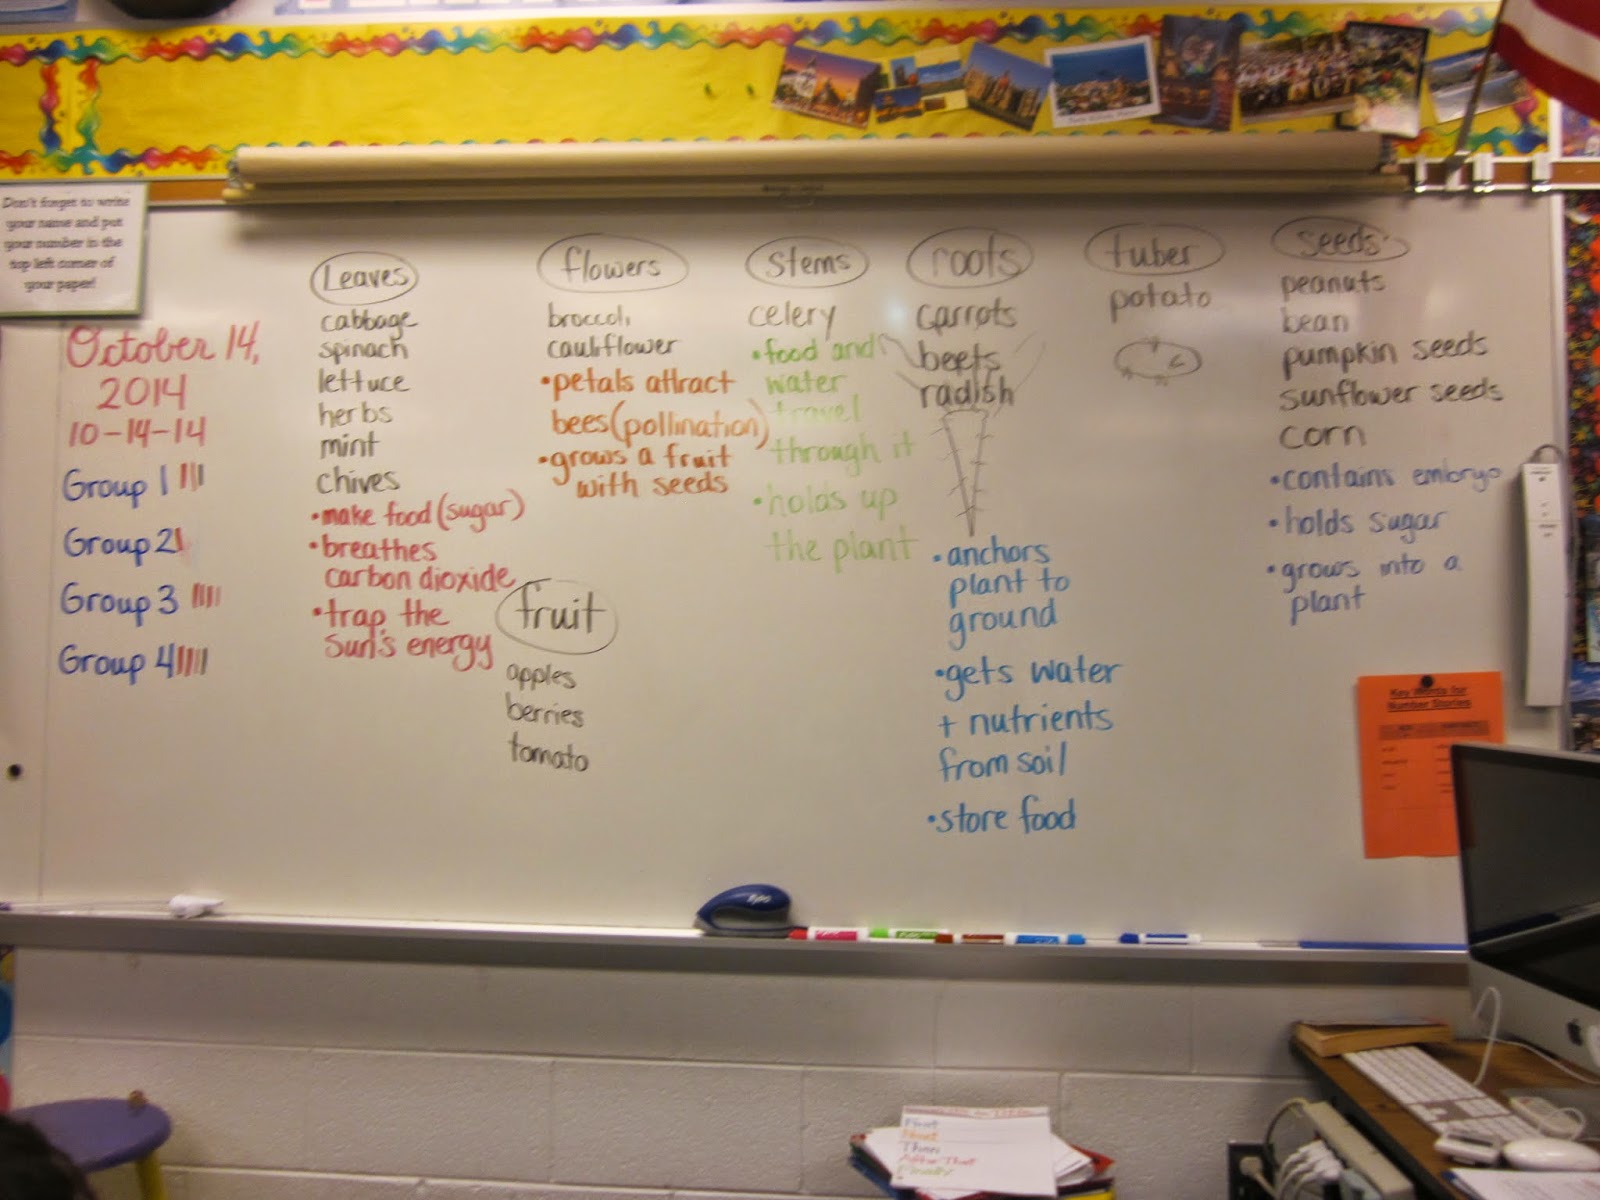 Don't forget to write
your name and put
your number in the
top left corner of
your paper!
October 14,
2014
10-14-14
Group 1
Group 2
Group 3
Group 4
Leaves
cabbage
spinach
lettuce
herbs
mint
chives
•make food (sugar)
•breathes
carbon dioxide
•trap the
Sun's energy
flowers
broccoli
cauliflower
•petals attract
bees (pollination)
•grows a fruit
with seeds
fruit
apples
berries
tomato
Stems
celery
•food and
water
travel
through it
•holds up
the plant
roots
carrots
beets
radish
•anchors
plant to
ground
•gets water
+ nutrients
from soil
•store food
tuber
potato
seeds
peanuts
bean
pumpkin seeds
sunflower seeds
corn
•contains embryo
•holds sugar
•grows into a
plant
Key Words for
Number Stories
First
Next
Then
After That
Finally